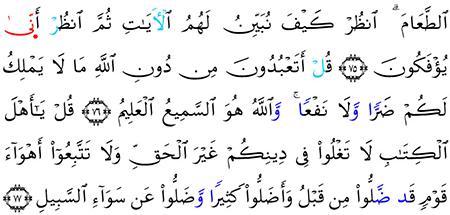 ٱلطَّعَامَۗ ٱنظُرۡ كَيۡفَ نُبَيِّنُ لَهُمُ ٱلۡأٓيَٰتِ ثُمَّ ٱنظُرۡ أَنَّىٰ
يُؤۡفَكُونَ ۝٧٥ قُلۡ أَتَعۡبُدُونَ مِن دُونِ ٱللَّهِ مَا لَا يَمۡلِكُ
لَكُمۡ ضَرّٗا وَلَا نَفۡعٗاۚ وَٱللَّهُ هُوَ ٱلسَّمِيعُ ٱلۡعَلِيمُ ۝٧٦ قُلۡ يَٰٓأَهۡلَ
ٱلۡكِتَٰبِ لَا تَغۡلُواْ فِي دِينِكُمۡ غَيۡرَ ٱلۡحَقِّ وَلَا تَتَّبِعُوٓاْ أَهۡوَآءَ
قَوۡمٖ قَدۡ ضَلُّواْ مِن قَبۡلُ وَأَضَلُّواْ كَثِيرٗا وَضَلُّواْ عَن سَوَآءِ ٱلسَّبِيلِ ۝٧٧